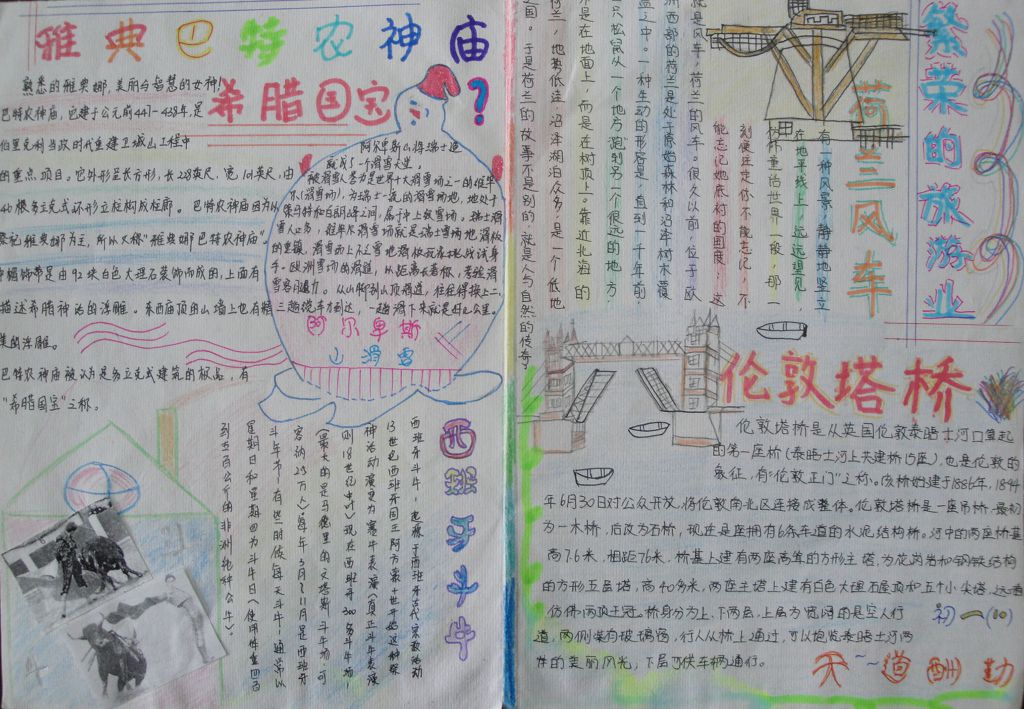 雅典巴特农神庙
希腊国宝?
熟悉的雅典娜,美丽与智慧的女神!
巴特农神庙,它建于公元前447—438年,是
伯里克利当政时代重建卫城山工程中
的重点项目。它外形呈长方形,长228英尺,宽101英尺,由
46根多立克式环形立柱构成柱廊。巴特农神庙因为以
祭祀雅典娜为主,所以又称“雅典娜巴特农神庙”,
檐饰带是由92块白色大理石装饰而成的,上面有
描述希腊神话的浮雕。东西庙顶的山墙上也有精
美的浮雕。
巴特农神庙被认为是多立克式建筑的极品,有
“希腊国宝”之称。
阿尔卑斯山将瑞士造
就成了一个滑雪天堂。
被滑雪人誉为是世界十大滑雪场之一的
滑雪客的魅力。从山脚到山顶福道,往往得换上二、
三趟缆车方到达,一趟滑下来就是好几公里。
阿尔卑斯
山滑雪
西班牙斗牛
西班牙斗牛,起源于西班牙古代宗教活动
13世纪西班牙国王阿方索十世开始这种祭
神活动演变为赛牛表演(真正斗牛表演
则18世纪中叶)现在西班牙300多斗牛场,
(最大的是马德里的文塔斯斗牛场,可
容纳25万人)每年3月~11月是西班牙
斗牛节,有些时候每天斗牛,通常以
星期日和星期四为斗牛日,使用体重四百
到五百公斤的非洲纯种公牛)
繁荣的旅游业
荷兰风车
有一种风景,静静地竖立
在地平线上,远远望见,
仿佛童话世界一般,那一
刻便注定你不能忘记,不
能忘记她底村的国度,这
就是风车,荷兰的风车。很久以前,位于欧
洲西部的荷兰是处于原始森林和沼泽树木覆
盖之中。一种生动的形容是,直到一千年前,
一只松鼠从一个地方跑到另一个很远的地方,
不是在地面上,而是在树顶上。靠近北海的
荷兰,地势低洼,沼泽湖泊众多,是一个低地
之国。于是荷兰的故事不是别的,就是人与自然的传奇。
伦敦塔桥
伦敦塔桥是从英国伦敦泰晤士河口算起
的第一座桥(泰晤士河上共建桥15座),也是伦敦的
象征,有“伦敦正门”之称。该桥始建于1886年,1894
年6月30日对公众开放,将伦敦南北区连接成整体。伦敦塔桥是一座吊桥,最初
为一木桥,后改为石桥,现在是座拥有6条车道的水泥结构桥。河中的两座桥基
高7.6米,相距76米,桥基上建有两座高耸的方形主塔,为花岗岩和钢铁结构
的方形五层塔,高40多米,两座主塔上建有白色大理石屋顶和五个小尖塔,远看
仿佛两顶王冠。桥身分为上、下两层,上层为宽阔的是空人行
道,两侧装有玻璃窗,行人从桥上通过,可以饱览泰晤士河两
岸的美丽风光,下层可供车辆通行。
初一(10)
天道酬勤